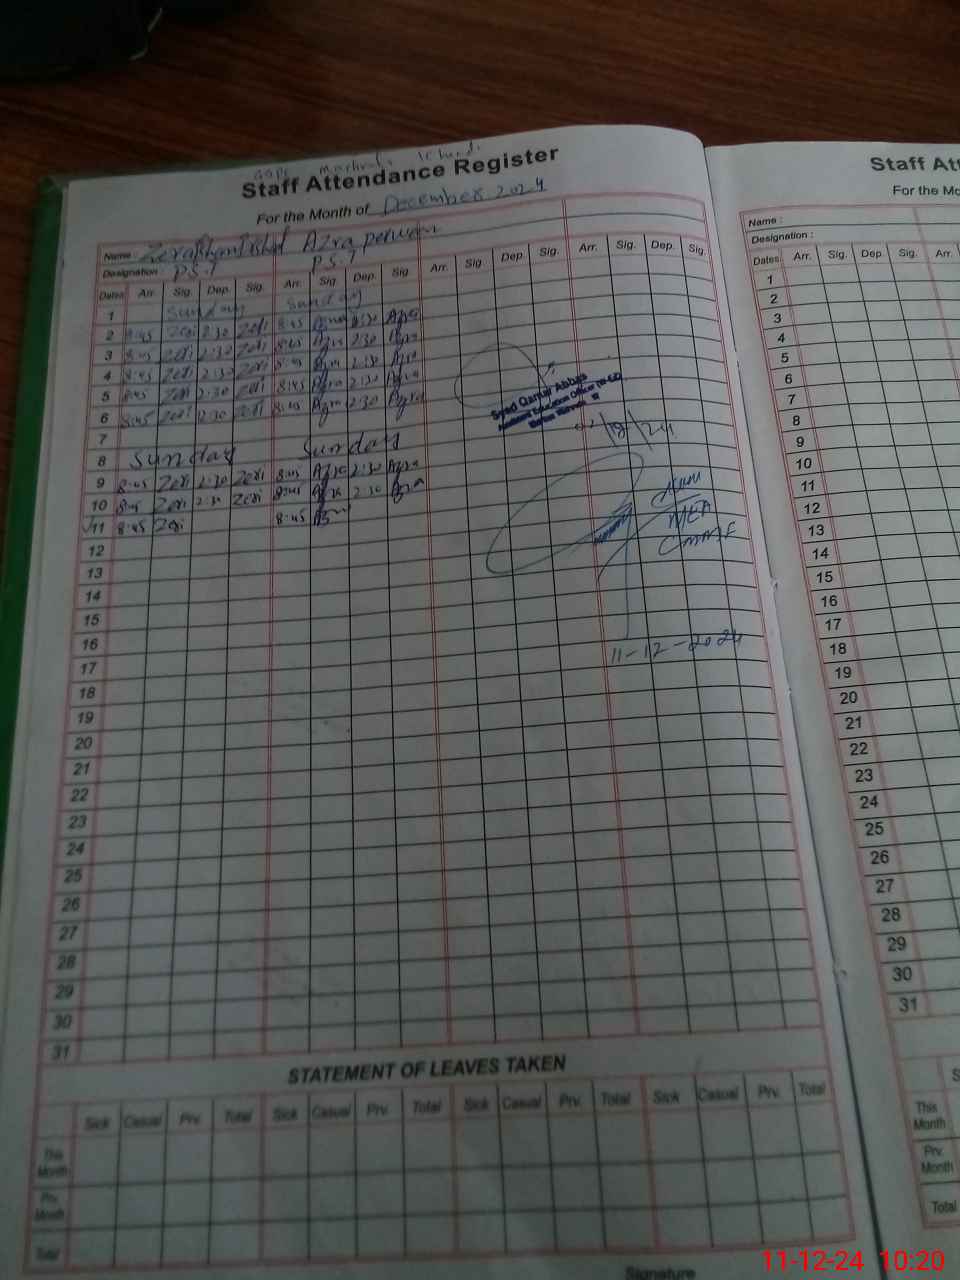 GGPS Mashrah Khurd.
Staff Attendance Register
For the Month of December 2024
Name : Azra perveen
Designation P.S.T P.S.T
Dates Arr. Sig. Dep. Sig. Arr. Sig. Dep. Sig. Arr. Sig. Dep. Sig. Arr. Sig. Dep. Sig.
1 Sunday Sunday
2 8:45 Zeri 2:30 Zeri 8:45 Azra 2:30 Azra
3 8:45 Zeri 2:30 Zeri 8:45 Azra 2:30 Azra
4 8:45 Zeri 2:30 Zeri 8:45 Azra 2:30 Azra
5 8:45 Zeri 2:30 Zeri 8:45 Azra 2:30 Azra
6 8:45 Zeri 2:30 Zeri 8:45 Azra 2:30 Azra
7
8 Sunday Sunday
9 8:45 Zeri 2:30 Zeri 8:45 Azra 2:30 Azra
10 8:45 Zeri 2:30 Zeri 8:45 Azra 2:30 Azra
11 8:45 Zeri 8:45 Azra
12
13
14
15
16
17
18
19
20
21
22
23
24
25
26
27
28
29
30
31
Syed Qamar Abbas
Assistant Education Officer
MEA
CMMF
11-12-2024
STATEMENT OF LEAVES TAKEN
Sick Casual Prv. Total Sick Casual Prv. Total Sick Casual Prv. Total Sick Casual Prv. Total
This Month
Prv. Month
Total
Signature
Staff Att
For the Mo
Name :
Designation :
Dates Arr. Sig. Dep. Sig. Arr.
1
2
3
4
5
6
7
8
9
10
11
12
13
14
15
16
17
18
19
20
21
22
23
24
25
26
27
28
29
30
31
S
This Month
Prv. Month
Total
11-12-24 10:20